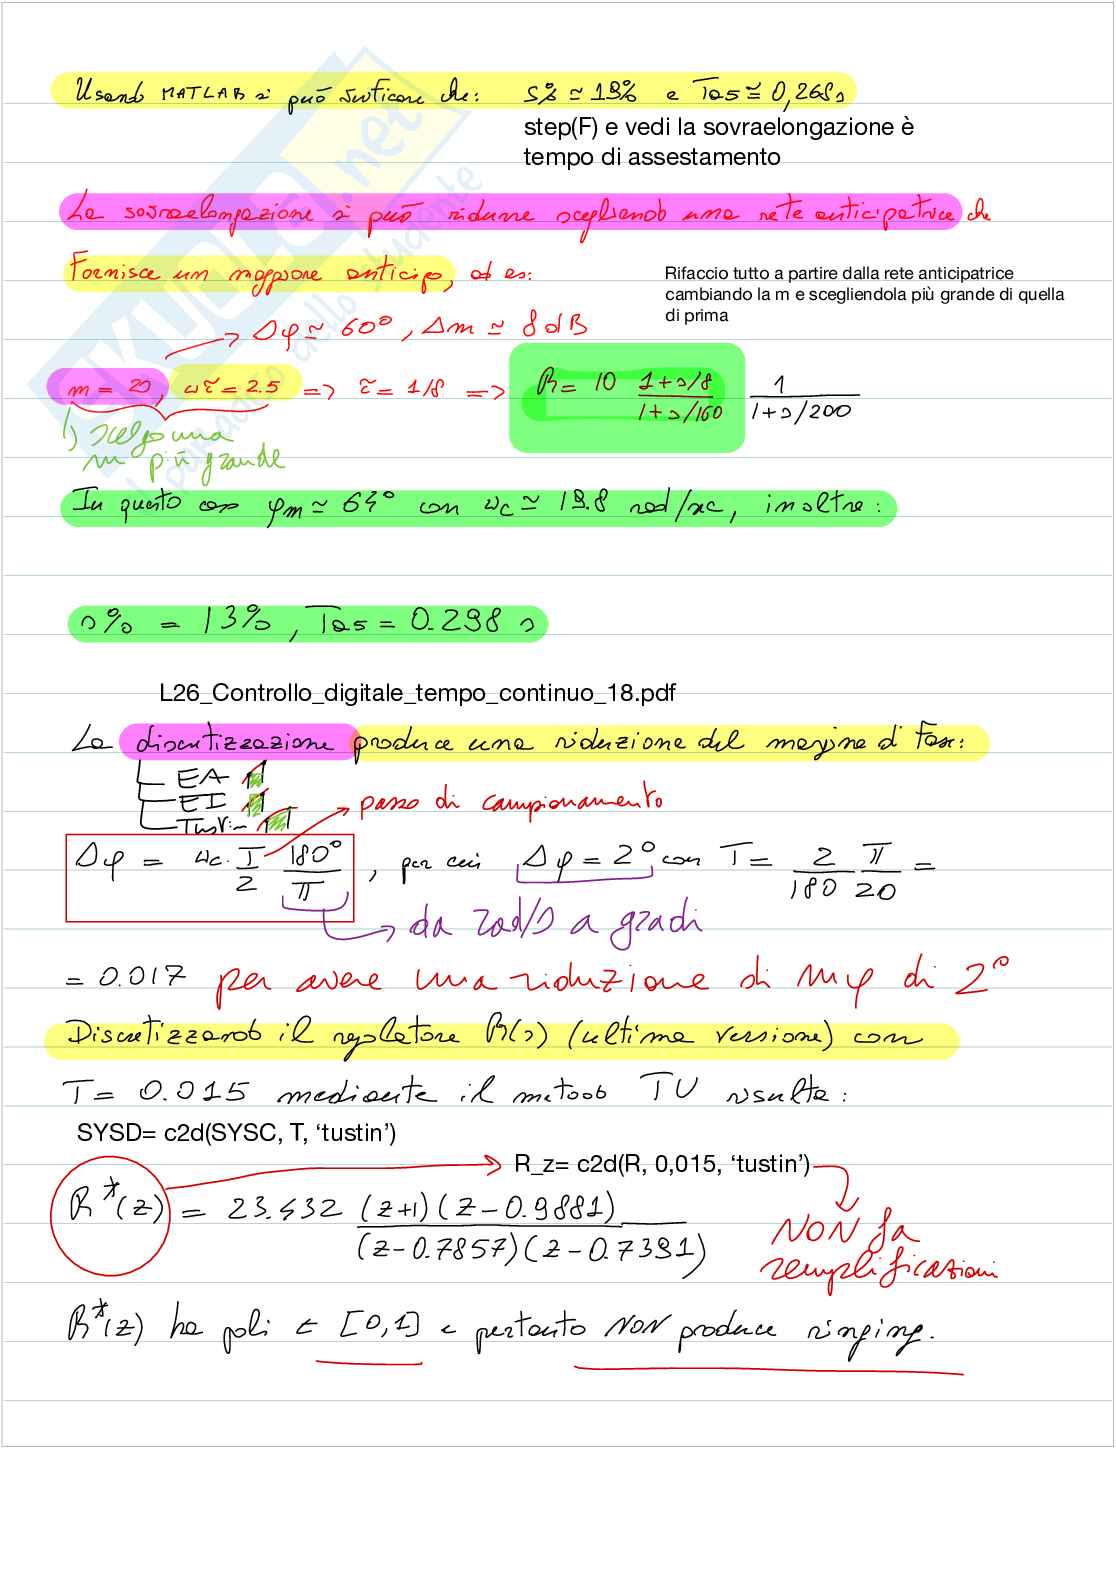 Usando MATLAB si può verificare che: s% ≃ 19% e Ta5 ≅ 0,268s
step(F) e vedi la sovraelongazione è
tempo di assestamento
La sovraelongazione si può ridurre scegliendo una rete anticipatrice che
Fornisce un maggiore anticipo, ad es:
Rifaccio tutto a partire dalla rete anticipatrice
cambiando la m e scegliendola più grande di quella
di prima
→ Δφ ≃ 60°, Δm ≃ 8 dB
m = 20, ωτ = 2.5 => τ = 1/8 => R = 10 (1+s/8)/(1+s/160) 1/(1+s/200)
↳ scelgo una
m più grande
In questo caso φm ≃ 64° con ωc ≃ 19.8 rad/sec, inoltre:
s% = 13%, Ta5 = 0.298 s
L26_Controllo_digitale_tempo_continuo_18.pdf
La discretizzazione produce una riduzione del margine di Fase:
EA
EI → passo di campionamento
Tustin
Δφ = ωc · T/2 180°/π, per cui Δφ = 2° con T = 2/180 π/20 =
→ da rad/s a gradi
= 0.017 per avere una riduzione di mφ di 2°
Discretizzando il regolatore R(s) (ultima versione) con
T = 0.015 mediante il metodo TU risulta:
SYSD= c2d(SYSC, T, ‘tustin’)
R_z= c2d(R, 0,015, ‘tustin’)
R*(z) = 23.432 (z+1)(z-0.9881)/(z-0.7857)(z-0.7391)
NON fa
semplificazioni
R*(z) ha poli ∈ [0,1] e pertanto NON produce ringing.